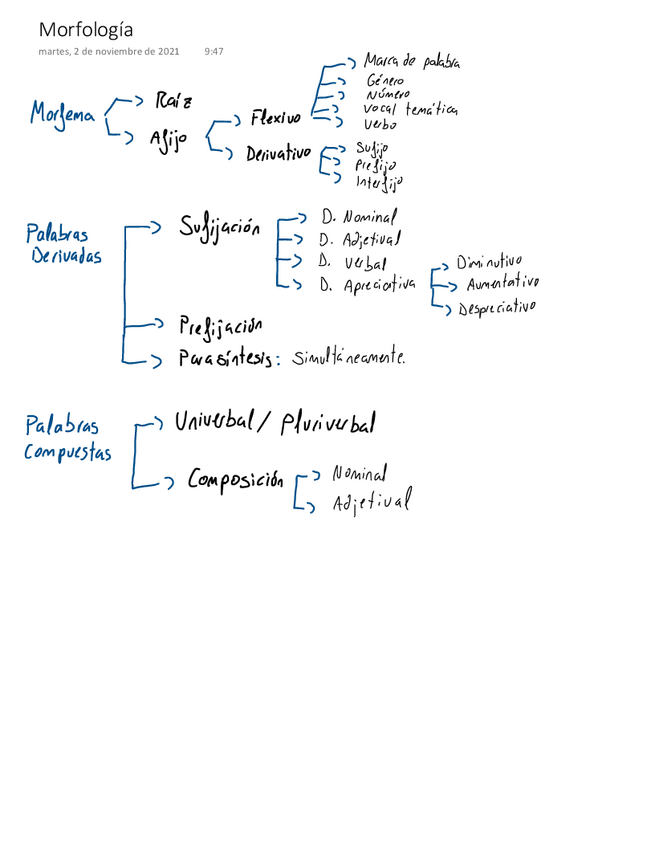 Morfología
martes, 2 de noviembre de 2021 9:47
Marca de palabra
Género
Número
Vocal temática
Verbo
Morfema
Raíz
Afijo
Flexivo
Derivativo
Sufijo
Prefijo
Interfijo
Palabras
Derivadas
Sufijación
D. Nominal
D. Adjetival
D. Verbal
D. Apreciativa
Diminutivo
Aumentativo
Despreciativo
Prefijación
Parasíntesis: Simultáneamente.
Palabras
Compuestas
Univerbal / Pluriverbal
Composición
Nominal
Adjetival